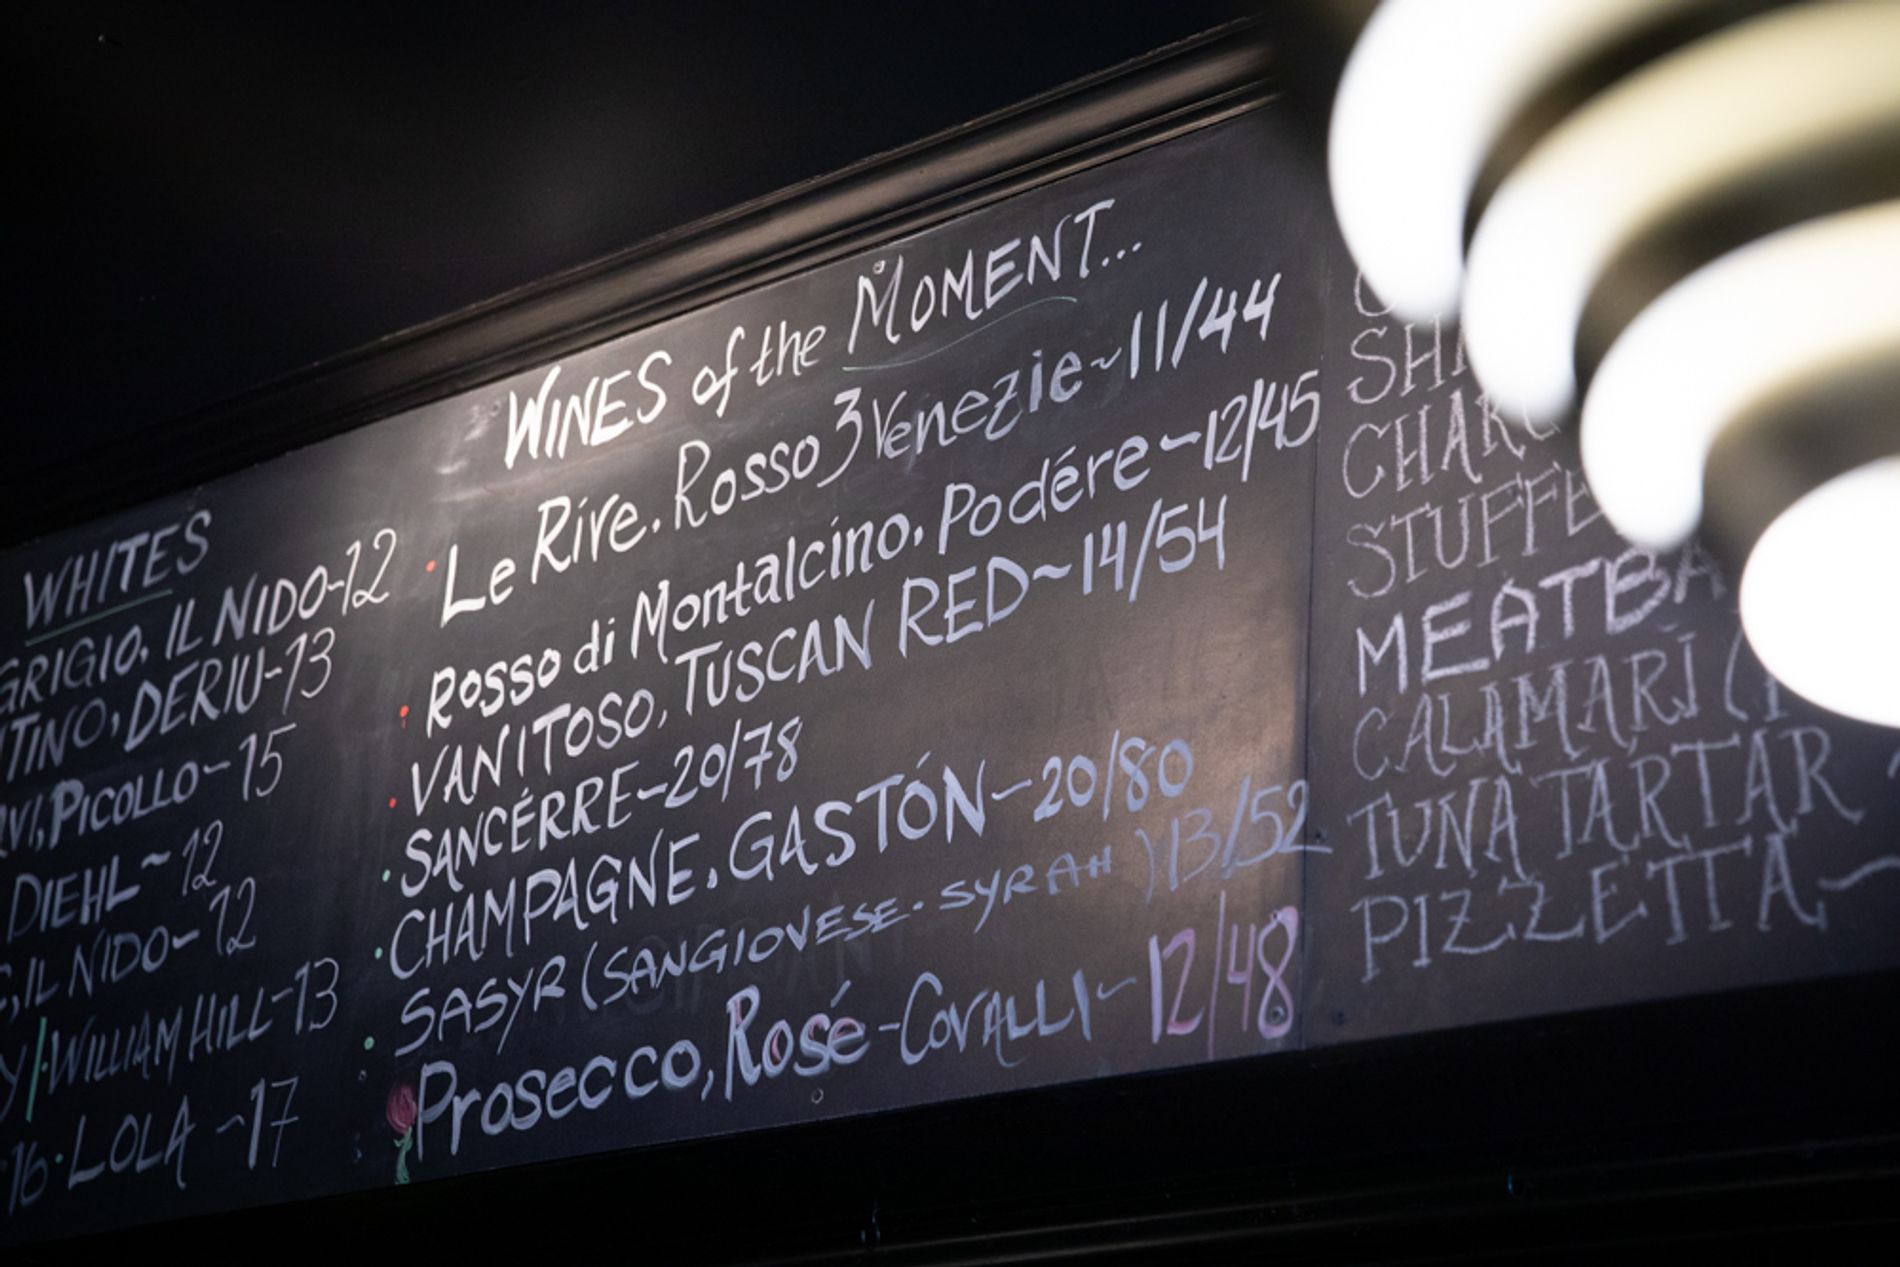 WHITES
GRIGIO, IL NIDO-12
TINO, DERIU-13
VI, PICOLLO~15
DIEHL~12
, IL NIDO~12
Y/·WILLIAM HILL-13
16·LOLA ~17
WINES of the MOMENT...
·Le Rive. Rosso 3 Venezie~11/44
·Rosso di Montalcino, Podére~12/45
·VANITOSO, TUSCAN RED~14/54
·SANCÉRRE-20/78
·CHAMPAGNE, GASTÓN-20/80
·SASYR (SANGIOVESE-SYRAH) 13/52
Prosecco, Rosé-COVALLI~12/48
SH
CHAR
STUFFE
MEATBA
CALAMARI (
TUNA TARTAR
PIZZETTA~